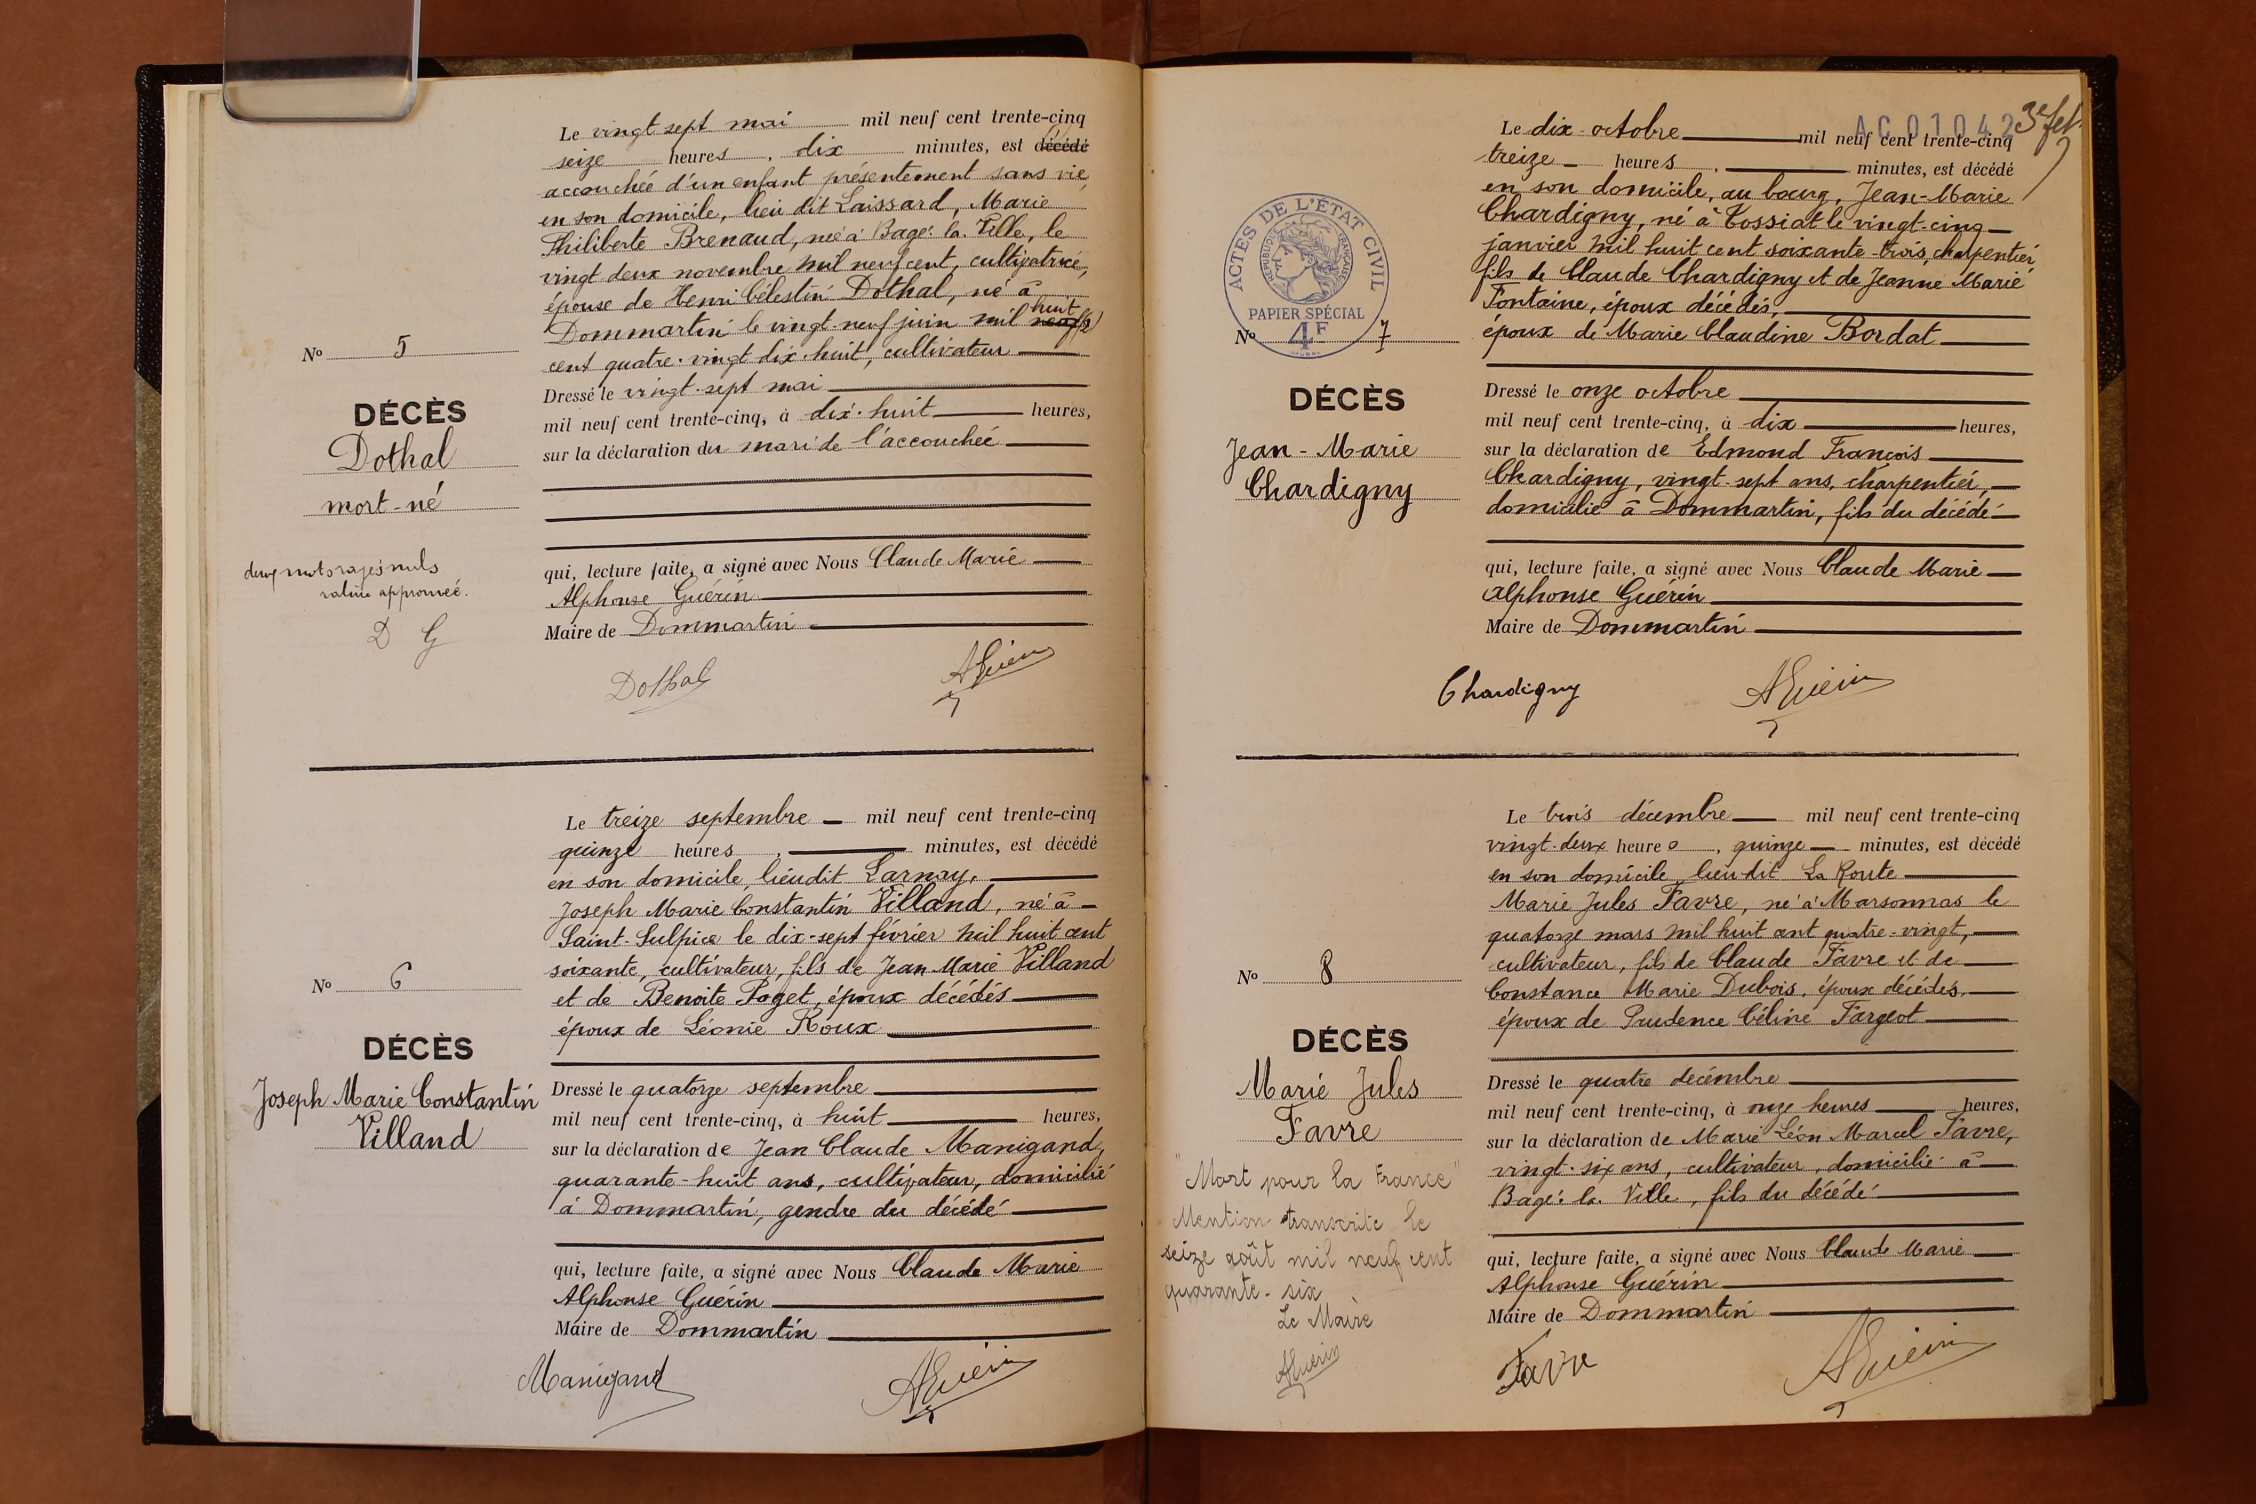 Le vingt sept mai mil neuf cent trente-cinq
seize heures, dix minutes, est décédé
accouchée d'un enfant présentement sans vie,
en son domicile, lieu dit Laissard, Marie
Philiberte Brenaud, née à Bagé-la-Ville, le
vingt deux novembre mil neuf cent, cultivatrice,
épouse de Henri Célestin Dothal, né à
huit
Dommartin le vingt-neuf juin mil neuf
cent quatre-vingt dix-huit, cultivateur
Nº 5
Dressé le vingt-sept mai
DÉCÈS
mil neuf cent trente-cinq, à dix-huit heures,
Dothal
sur la déclaration du mari de l'accouchée
mort-né
deux mots rayés nuls
rature approuvée.
D G
qui, lecture faite, a signé avec Nous Claude Marie
Alphonse Guérin
Maire de Dommartin
Dothal AGuérin
Le treize septembre mil neuf cent trente-cinq
quinze heures, minutes, est décédé
en son domicile, lieudit Larnay,
Joseph Marie Constantin Villand, né à
Saint-Sulpice le dix-sept février mil huit cent
soixante, cultivateur, fils de Jean Marie Villand
Nº 6
et de Benoite Poget, époux décédés
époux de Léonie Roux
DÉCÈS
Joseph Marie Constantin
Villand
Dressé le quatorze septembre
mil neuf cent trente-cinq, à huit heures,
sur la déclaration de Jean Claude Manigand,
quarante-huit ans, cultivateur, domicilié
à Dommartin, gendre du décédé
qui, lecture faite, a signé avec Nous Claude Marie
Alphonse Guérin
Maire de Dommartin
Manigand AGuérin
AC01042
3e fet
Le dix octobre mil neuf cent trente-cinq
treize heures, minutes, est décédé
en son domicile, au bourg, Jean-Marie
Chardigny, né à Tossiat le vingt-cinq
janvier mil huit cent soixante-trois, charpentier
fils de Claude Chardigny et de Jeanne Marie
Fontaine, époux décédés,
époux de Marie Claudine Bordat
ACTES DE L'ÉTAT CIVIL
RÉPUBLIQUE FRANÇAISE
PAPIER SPÉCIAL
4F
Nº 7
DÉCÈS
Jean-Marie
Chardigny
Dressé le onze octobre
mil neuf cent trente-cinq, à dix heures,
sur la déclaration de Edmond François
Chardigny, vingt-sept ans, charpentier,
domicilié à Dommartin, fils du décédé
qui, lecture faite, a signé avec Nous Claude Marie
Alphonse Guérin
Maire de Dommartin
Chardigny AGuérin
Le trois décembre mil neuf cent trente-cinq
vingt-deux heures, quinze minutes, est décédé
en son domicile lieu-dit La Route
Marie Jules Favre, né à Marsonnas le
quatorze mars mil huit cent quatre-vingt,
cultivateur, fils de Claude Favre et de
Constance Marie Dubois, époux décédés,
époux de Prudence Céline Fargeot
Nº 8
DÉCÈS
Marie Jules
Favre
"Mort pour la France"
Mention transcrite le
seize août mil neuf cent
quarante-six
Le Maire
AGuérin
Dressé le quatre décembre
mil neuf cent trente-cinq, à onze heures heures,
sur la déclaration de Marie Léon Marcel Favre,
vingt-six ans, cultivateur, domicilié à
Bagé-la-Ville, fils du décédé
qui, lecture faite, a signé avec Nous Claude Marie
Alphonse Guérin
Maire de Dommartin
Favre AGuérin